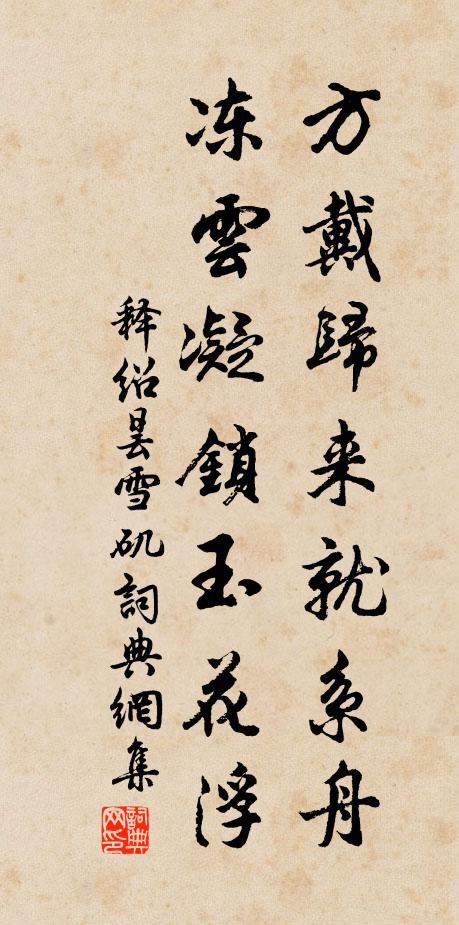 方戴歸来就系舟
冻雲凝鎖玉花浮
释绍昙雪矶詞典網集
詞典网印